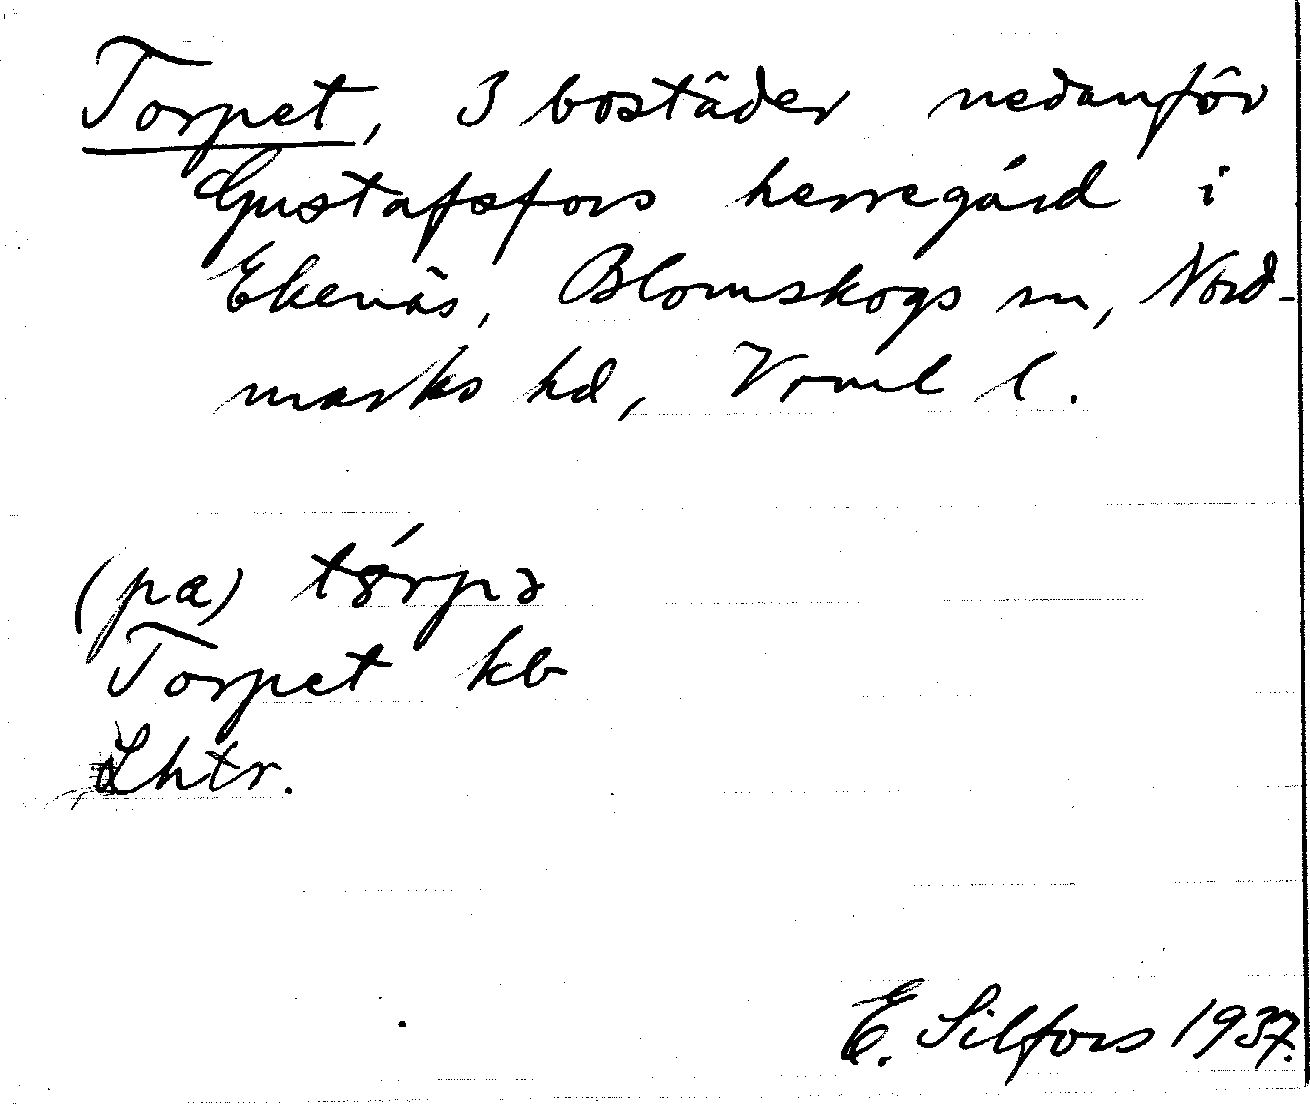 Torpet, 3 bostäder nedanför
Gustafsfors herregård i
Ekenäs, Blomskogs sn, Nord-
marks hd, Vrml l.
(pa) tórpə
Torpet kb
Lhtr.
E. Silfors 1937.